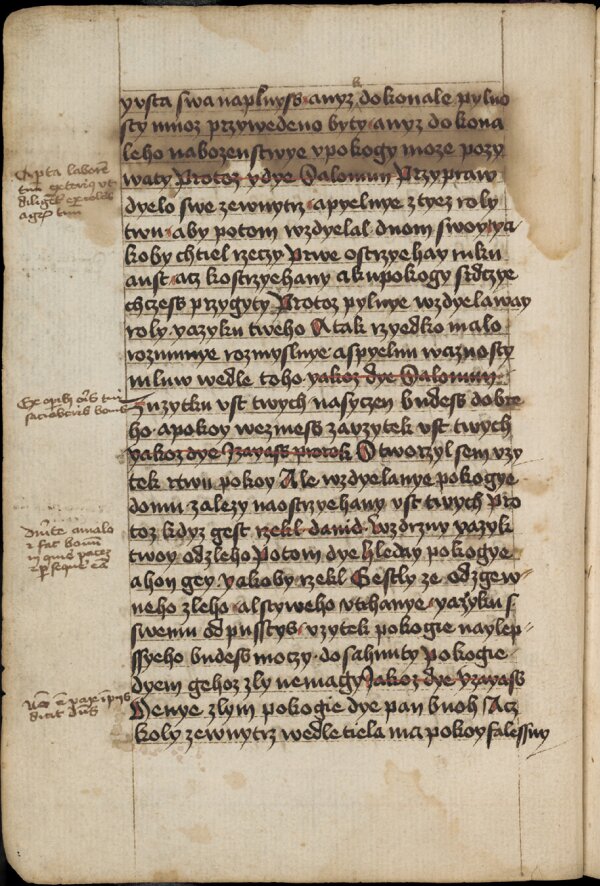 yvsta swa naplnyss anyz dokonale pylno
sty mnoz przywedeno byty anyz dokona
leho nabozenstwye vpokogy moze pozy
waty Protoz vdye Salomun Przypraw
dyelo swe zewnytrz apyelnye ztyez roly
twu aby potom wzdyelal duom swoy yá
koby chtiel rzeczy Prwe ostrzyehay nku
aust acz kostrzyehany akupokogy srdczye
chczess przygyty Protoz pylnye wzdyelaway
roly yazyku tweho A tak rzyedko malo
rozumnye rozmyslnye aspyelnu waznosty
mluw wedle toho yakoz dye Salomun
Zuzytku vst twych nasyczen budess dobre
ho apokoy wezmess zavzytek vst twych
yakoz dye Izayass prorok Stworzyl sem vzy
tek rtwu pokoy Ale wzdyelanye pokogye
domu zalezy naostrzyehany vst twych Pro
toz kdyz gest rzekl dauid Wzdrzuy yazyk
twoy odzleho Potom dye hleday pokogye
ahon gey yakoby rzekl Gestly ze odzgew
neho zleho alstyweho vtrhanye yazyku s
swemu odpusstys vzytek pokogie naylep
ssyeho budess moczy dosahnuty Pokogie
dyem gehoz zly nemagy Jakoz dye yzayass
Nenye zlym pokogie dye pan buoh Acz
koly zewnytrz wedle tiela ma pokoy falessny
Apta laborem
tuum exterius et
diligenter exerce
agrum tuum
Ex
Diuerte a malo
et fac bonum
inquire pacem
et persequere eam
Non est pax impiis
dicit dominus